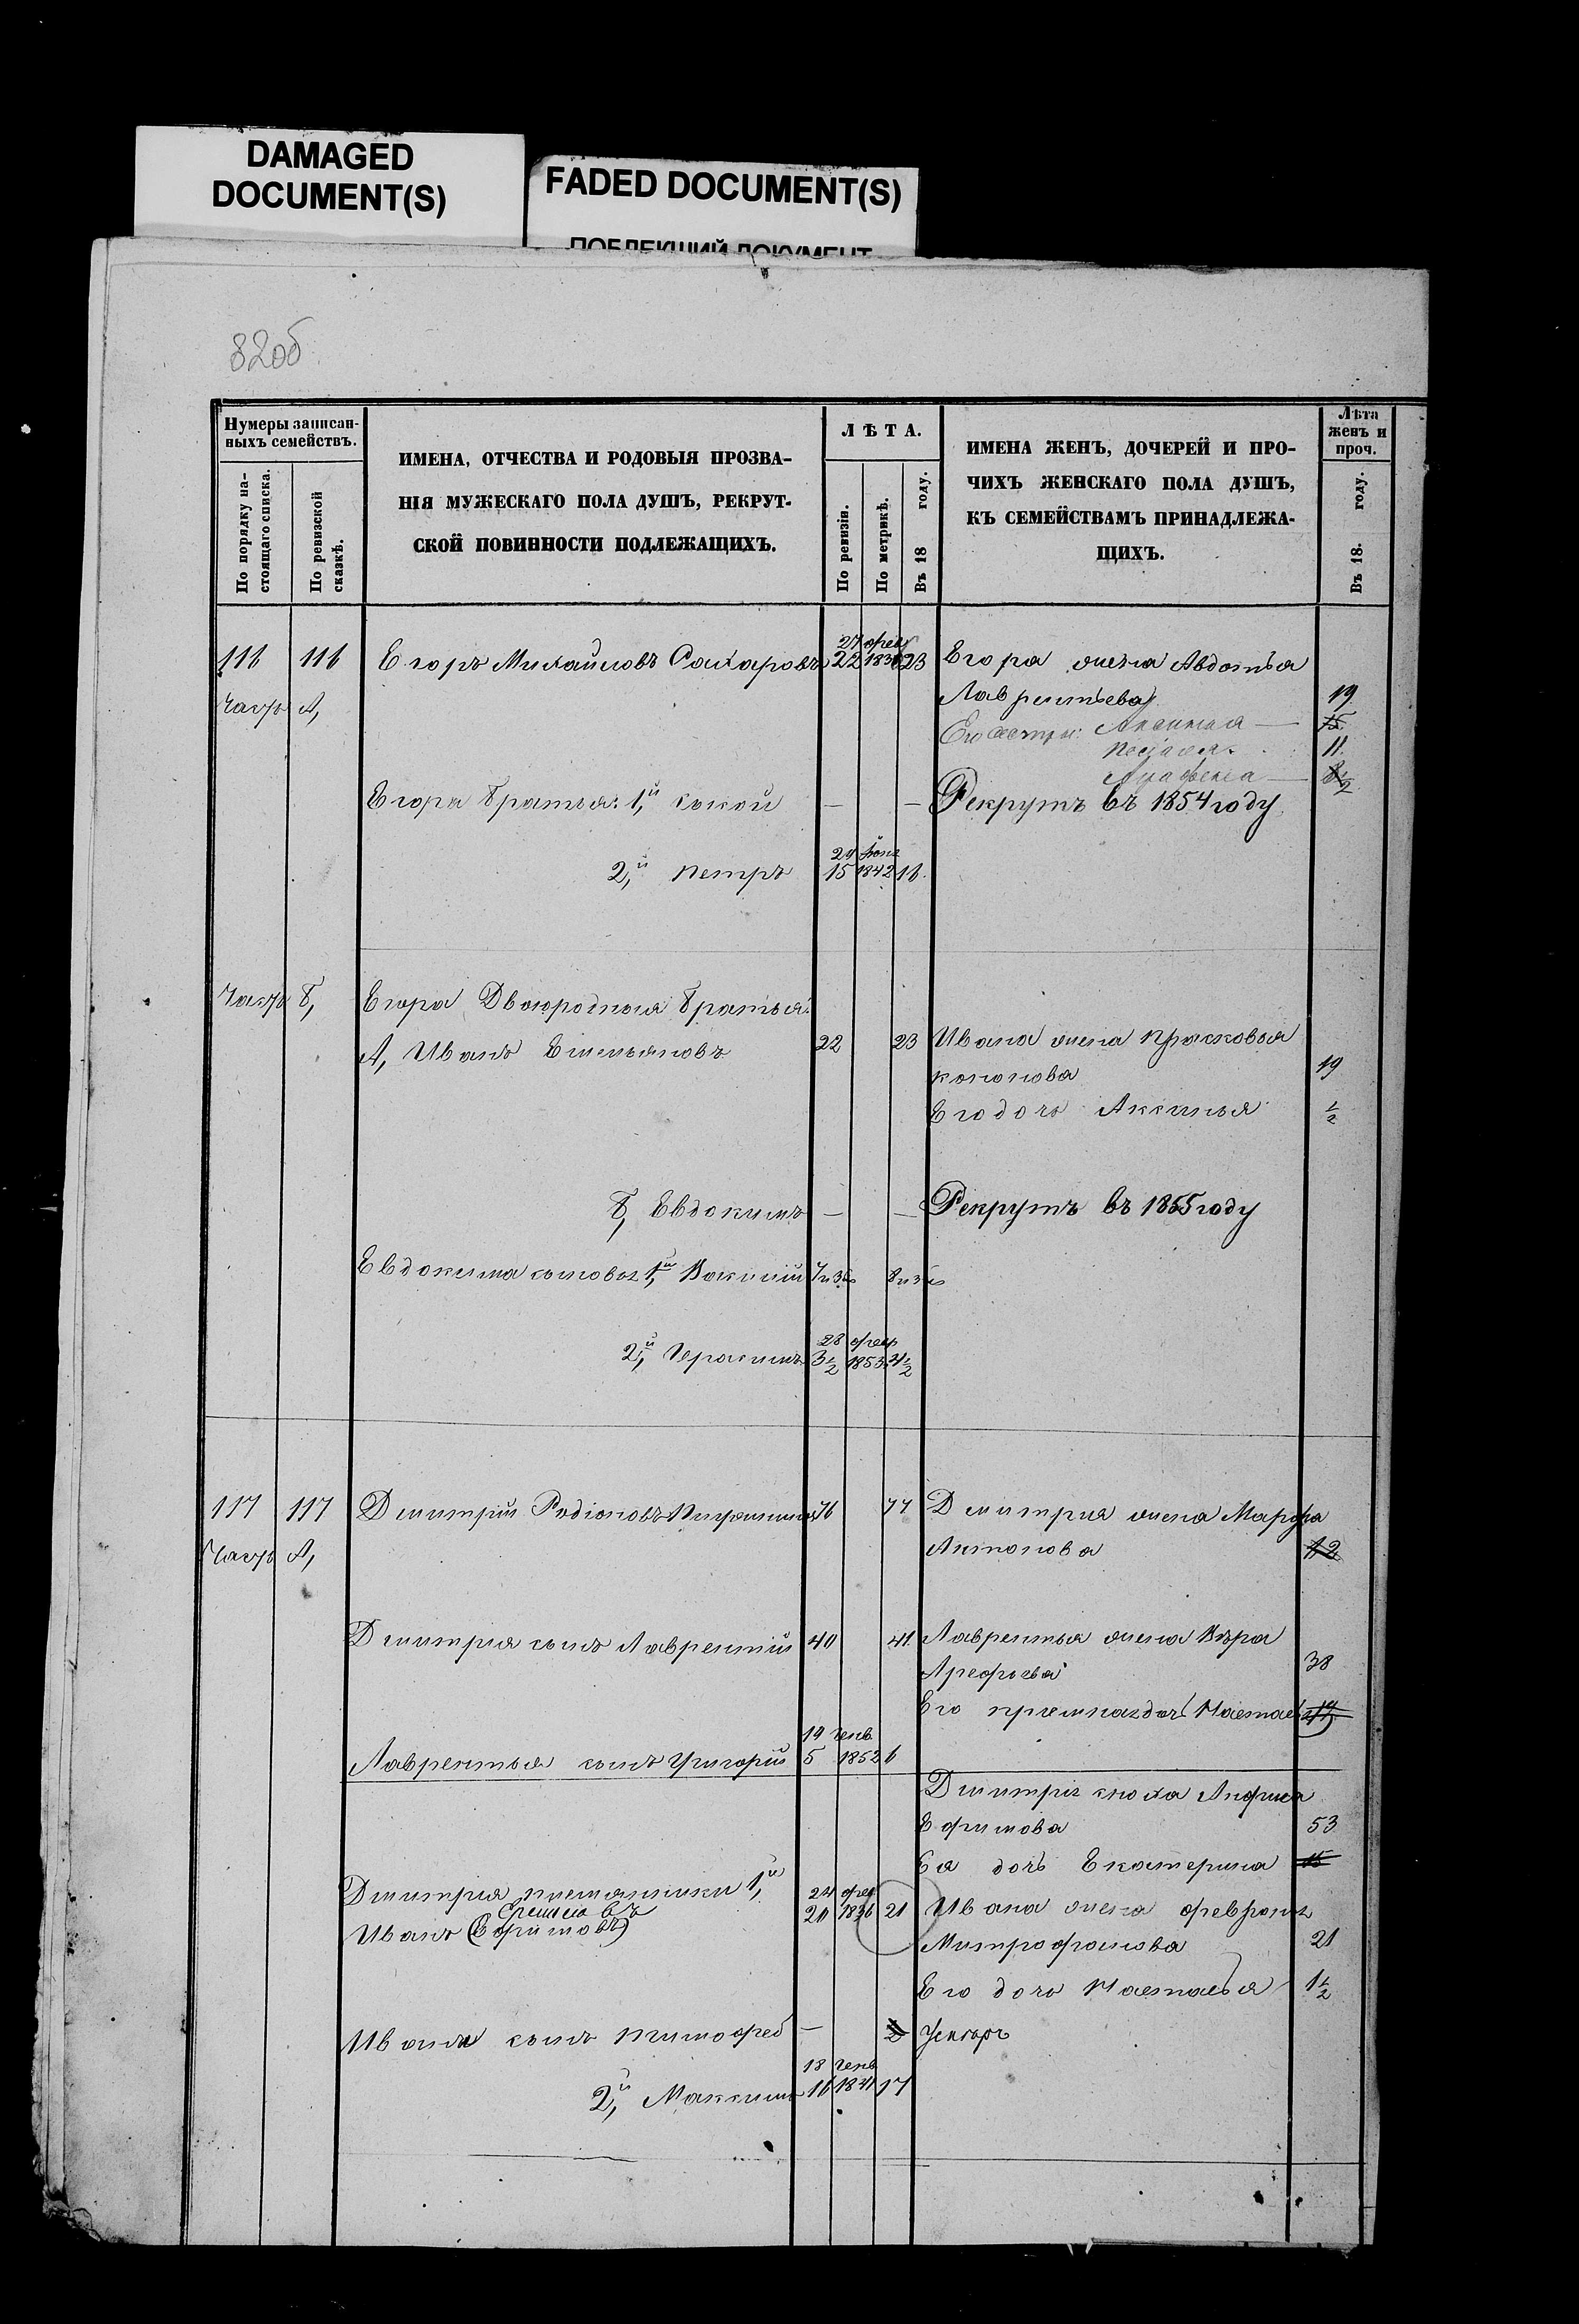 DAMAGED
DOCUMENT(S)
FADED DOCUMENT(S)
ПОБЛЕКШИЙ ДОКУМЕНТ
82об
Нумеры записан-
ныхъ семействъ.
По порядку на-
стоящаго списка.
По ревизской
сказкѣ.
ИМЕНА, ОТЧЕСТВА И РОДОВЫЯ ПРОЗВА-
НІЯ МУЖЕСКАГО ПОЛА ДУШЪ, РЕКРУТ-
СКОЙ ПОВИННОСТИ ПОДЛЕЖАЩИХЪ.
ЛѢТА.
По ревизіи.
По метрикѣ.
Въ 18 году.
ИМЕНА ЖЕНЪ, ДОЧЕРЕЙ И ПРО-
ЧИХЪ ЖЕНСКАГО ПОЛА ДУШЪ,
КЪ СЕМЕЙСТВАМЪ ПРИНАДЛЕЖА-
ЩИХЪ.
Лѣта
женъ и
проч.
Въ 18. году.
27 фев
116 116 Егоръ Михайловъ Сахаровъ 22 23 Егора жена Авдотья
Часть А, Лаврентьева 19
Его сестры: 15
11
8 1/2
Егора братья: 1,й — — Рекрутъ въ 1854 году
29
2,й Петръ 15 1842 16.
Часть б, Егора Двоюродныя братья:
А, Иванъ Емельяновъ 22 23 Ивана жена Прасковья
Кононова 19
Его дочь Аксинья 1/2
б, Евдокимъ — — Рекрутъ въ 1855 году
Евдокима сыновья 1,й
28 фев
2,й Герасимъ 3 1/2 1853 4 1/2
117 117 Дмитрій Родіоновъ 76 77 Дмитрія жена Марфа
Часть А, Антонова
Дмитрія сынъ Лаврентій 40 41 Лаврентья жена Вѣра
Арефьева 38
Его
19 генв
Лаврентья сынъ Григорій 5 1852 6
Дмитрія сноха Анфиса
Ефимова 53
Ея дочь Екатерина 15
Дмитрія племянники 1,й 24 фев
Иванъ (Ефимовъ) 20 1836 21 Ивана жена Февронья
Митрофанова 21
Его дочь Настасья 1 1/2
Ивана сынъ Тимофей — 1/2 Умеръ
18 генв
2,й Максимъ 16 1841 17